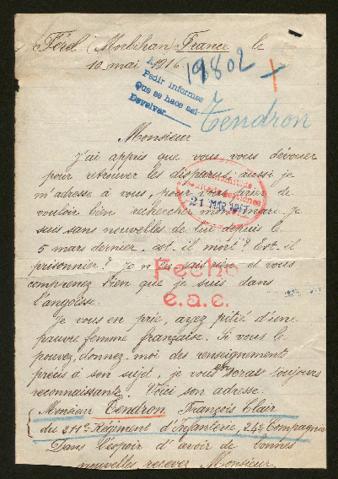 Férel (Morbihan) France le
10 mai 1916
19802 +
Pedir informes
que se hace así
Devolver
Tendron
Monsieur
J'ai appris que vous vous dévouez
pour retrouver les disparus aussi je
m'adresse à vous, pour vous prier de
vouloir bien rechercher mon mari. Je
suis sans nouvelles de lui depuis le
5 mars dernier. est-il mort? Est-il
prisonnier? Je n'en sais rien et vous
comprenez bien que je suis dans
l'angoisse.
Fecha
e.a.c.
Je vous en prie, ayez pitié d'une
pauvre femme française. Si vous le
pouvez, donnez-moi des renseignements
précis à son sujet, je vous serai toujours
reconnaissante. Voici son adresse.
Monsieur Tendron François Clair
du 211e Régiment d'infanterie, 24e Compagnie
Dans l'espoir d'avoir de bonnes
nouvelles recevez Monsieur